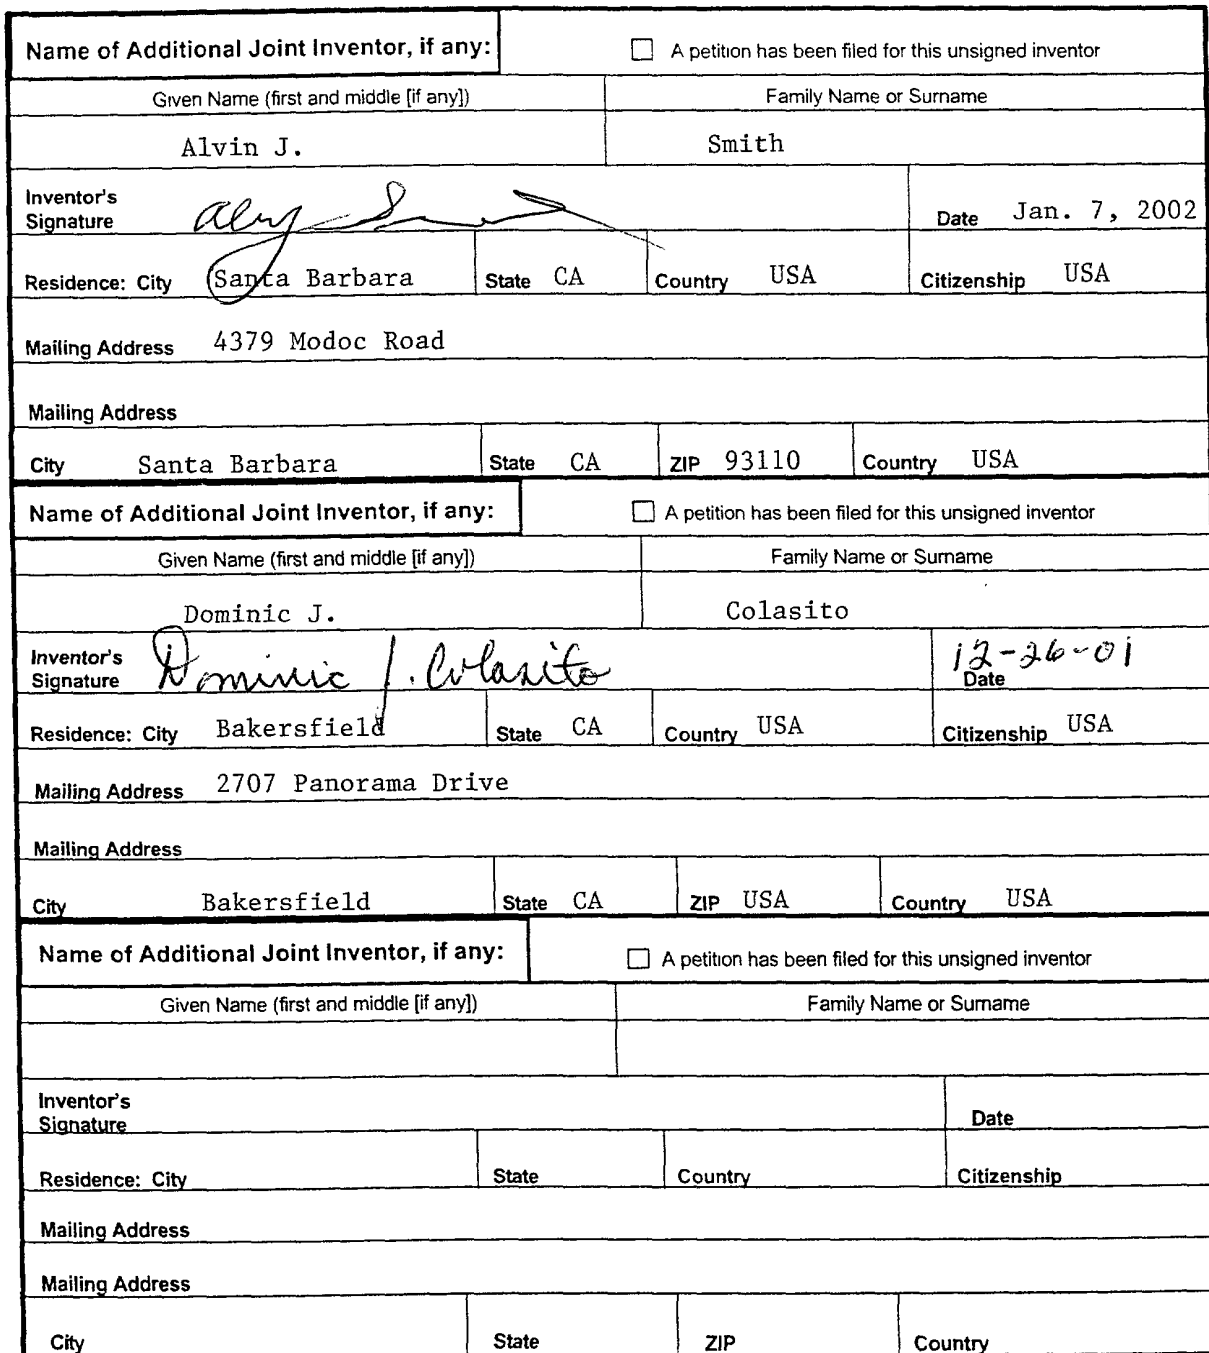 Name of Additional Joint Inventor, if any: A petition has been filed for this unsigned inventor
Given Name (first and middle [if any]) Family Name or Surname
Alvin J. Smith
Inventor's
Signature Date Jan. 7, 2002
Residence: City Santa Barbara State CA Country USA Citizenship USA
Mailing Address 4379 Modoc Road
Mailing Address
City Santa Barbara State CA ZIP 93110 Country USA
Name of Additional Joint Inventor, if any: A petition has been filed for this unsigned inventor
Given Name (first and middle [if any]) Family Name or Surname
Dominic J. Colasito
Inventor's
Signature Dominic J. Colasito 12-26-01
Date
Residence: City Bakersfield State CA Country USA Citizenship USA
Mailing Address 2707 Panorama Drive
Mailing Address
City Bakersfield State CA ZIP USA Country USA
Name of Additional Joint Inventor, if any: A petition has been filed for this unsigned inventor
Given Name (first and middle [if any]) Family Name or Surname
Inventor's
Signature Date
Residence: City State Country Citizenship
Mailing Address
Mailing Address
City State ZIP Country